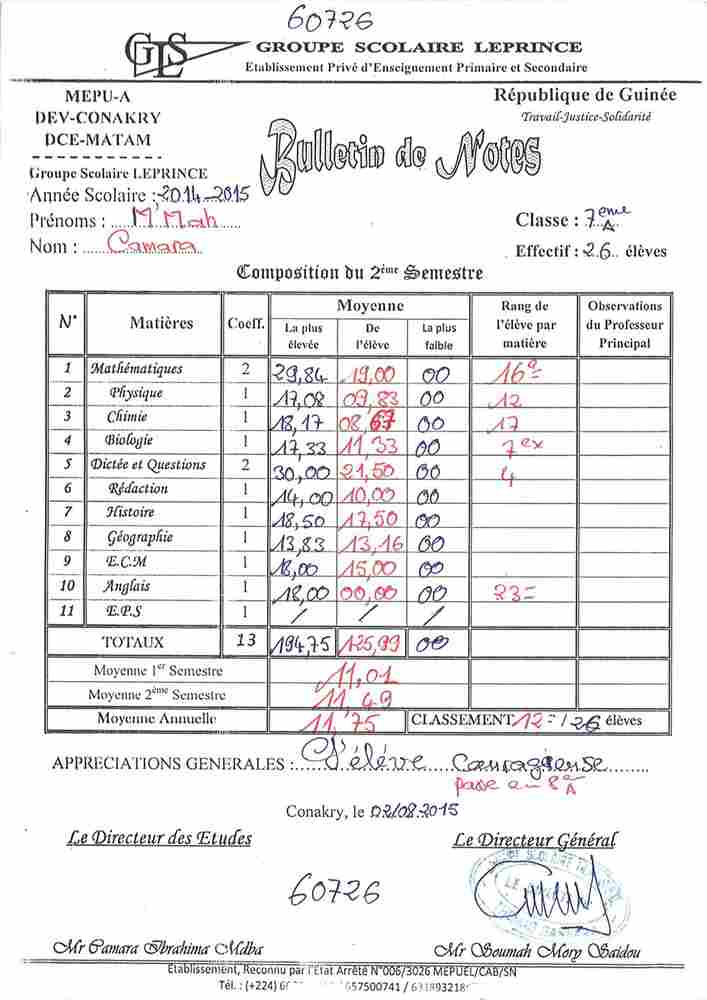 60726
GLS GROUPE SCOLAIRE LEPRINCE
Etablissement Privé d'Enseignement Primaire et Secondaire
MEPU-A
DEV-CONAKRY
DCE-MATAM
République de Guinée
Travail-Justice-Solidarité
Bulletin de Notes
Groupe Scolaire LEPRINCE
Année Scolaire : 2014-2015
Prénoms : M'Mah
Nom : Camara
Classe : 7ème A
Effectif : 26 élèves
Composition du 2ème Semestre
N° Matières Coeff. Moyenne Rang de l'élève par matière Observations du Professeur Principal
La plus élevée De l'élève La plus faible
1 Mathématiques 2 29,84 19,00 00 16e
2 Physique 1 17,08 09,83 00 12
3 Chimie 1 18,17 08,67 00 17
4 Biologie 1 17,33 11,33 00 7ex
5 Dictée et Questions 2 30,00 21,50 00 4
6 Rédaction 1 14,00 10,00 00
7 Histoire 1 18,50 17,50 00
8 Géographie 1 13,83 13,16 00
9 E.C.M 1 18,00 15,00 00
10 Anglais 1 18,00 00,00 00 23=
11 E.P.S 1 / / /
TOTAUX 13 194,75 125,99 00
Moyenne 1er Semestre 11,01
Moyenne 2ème Semestre 11,49
Moyenne Annuelle 11,75 CLASSEMENT 12= / 26 élèves
APPRECIATIONS GENERALES : L'élève Courageuse
passe en 8e A
Conakry, le 02/08/2015
Le Directeur des Etudes
Le Directeur Général
60726
Mr Camara Ibrahima Mdba
Mr Soumah Mory Saidou
Etablissement, Reconnu par l'Etat Arrêté N°006/3026 MEPUEL/CAB/SN
Tél. : (+224) 657500741 /